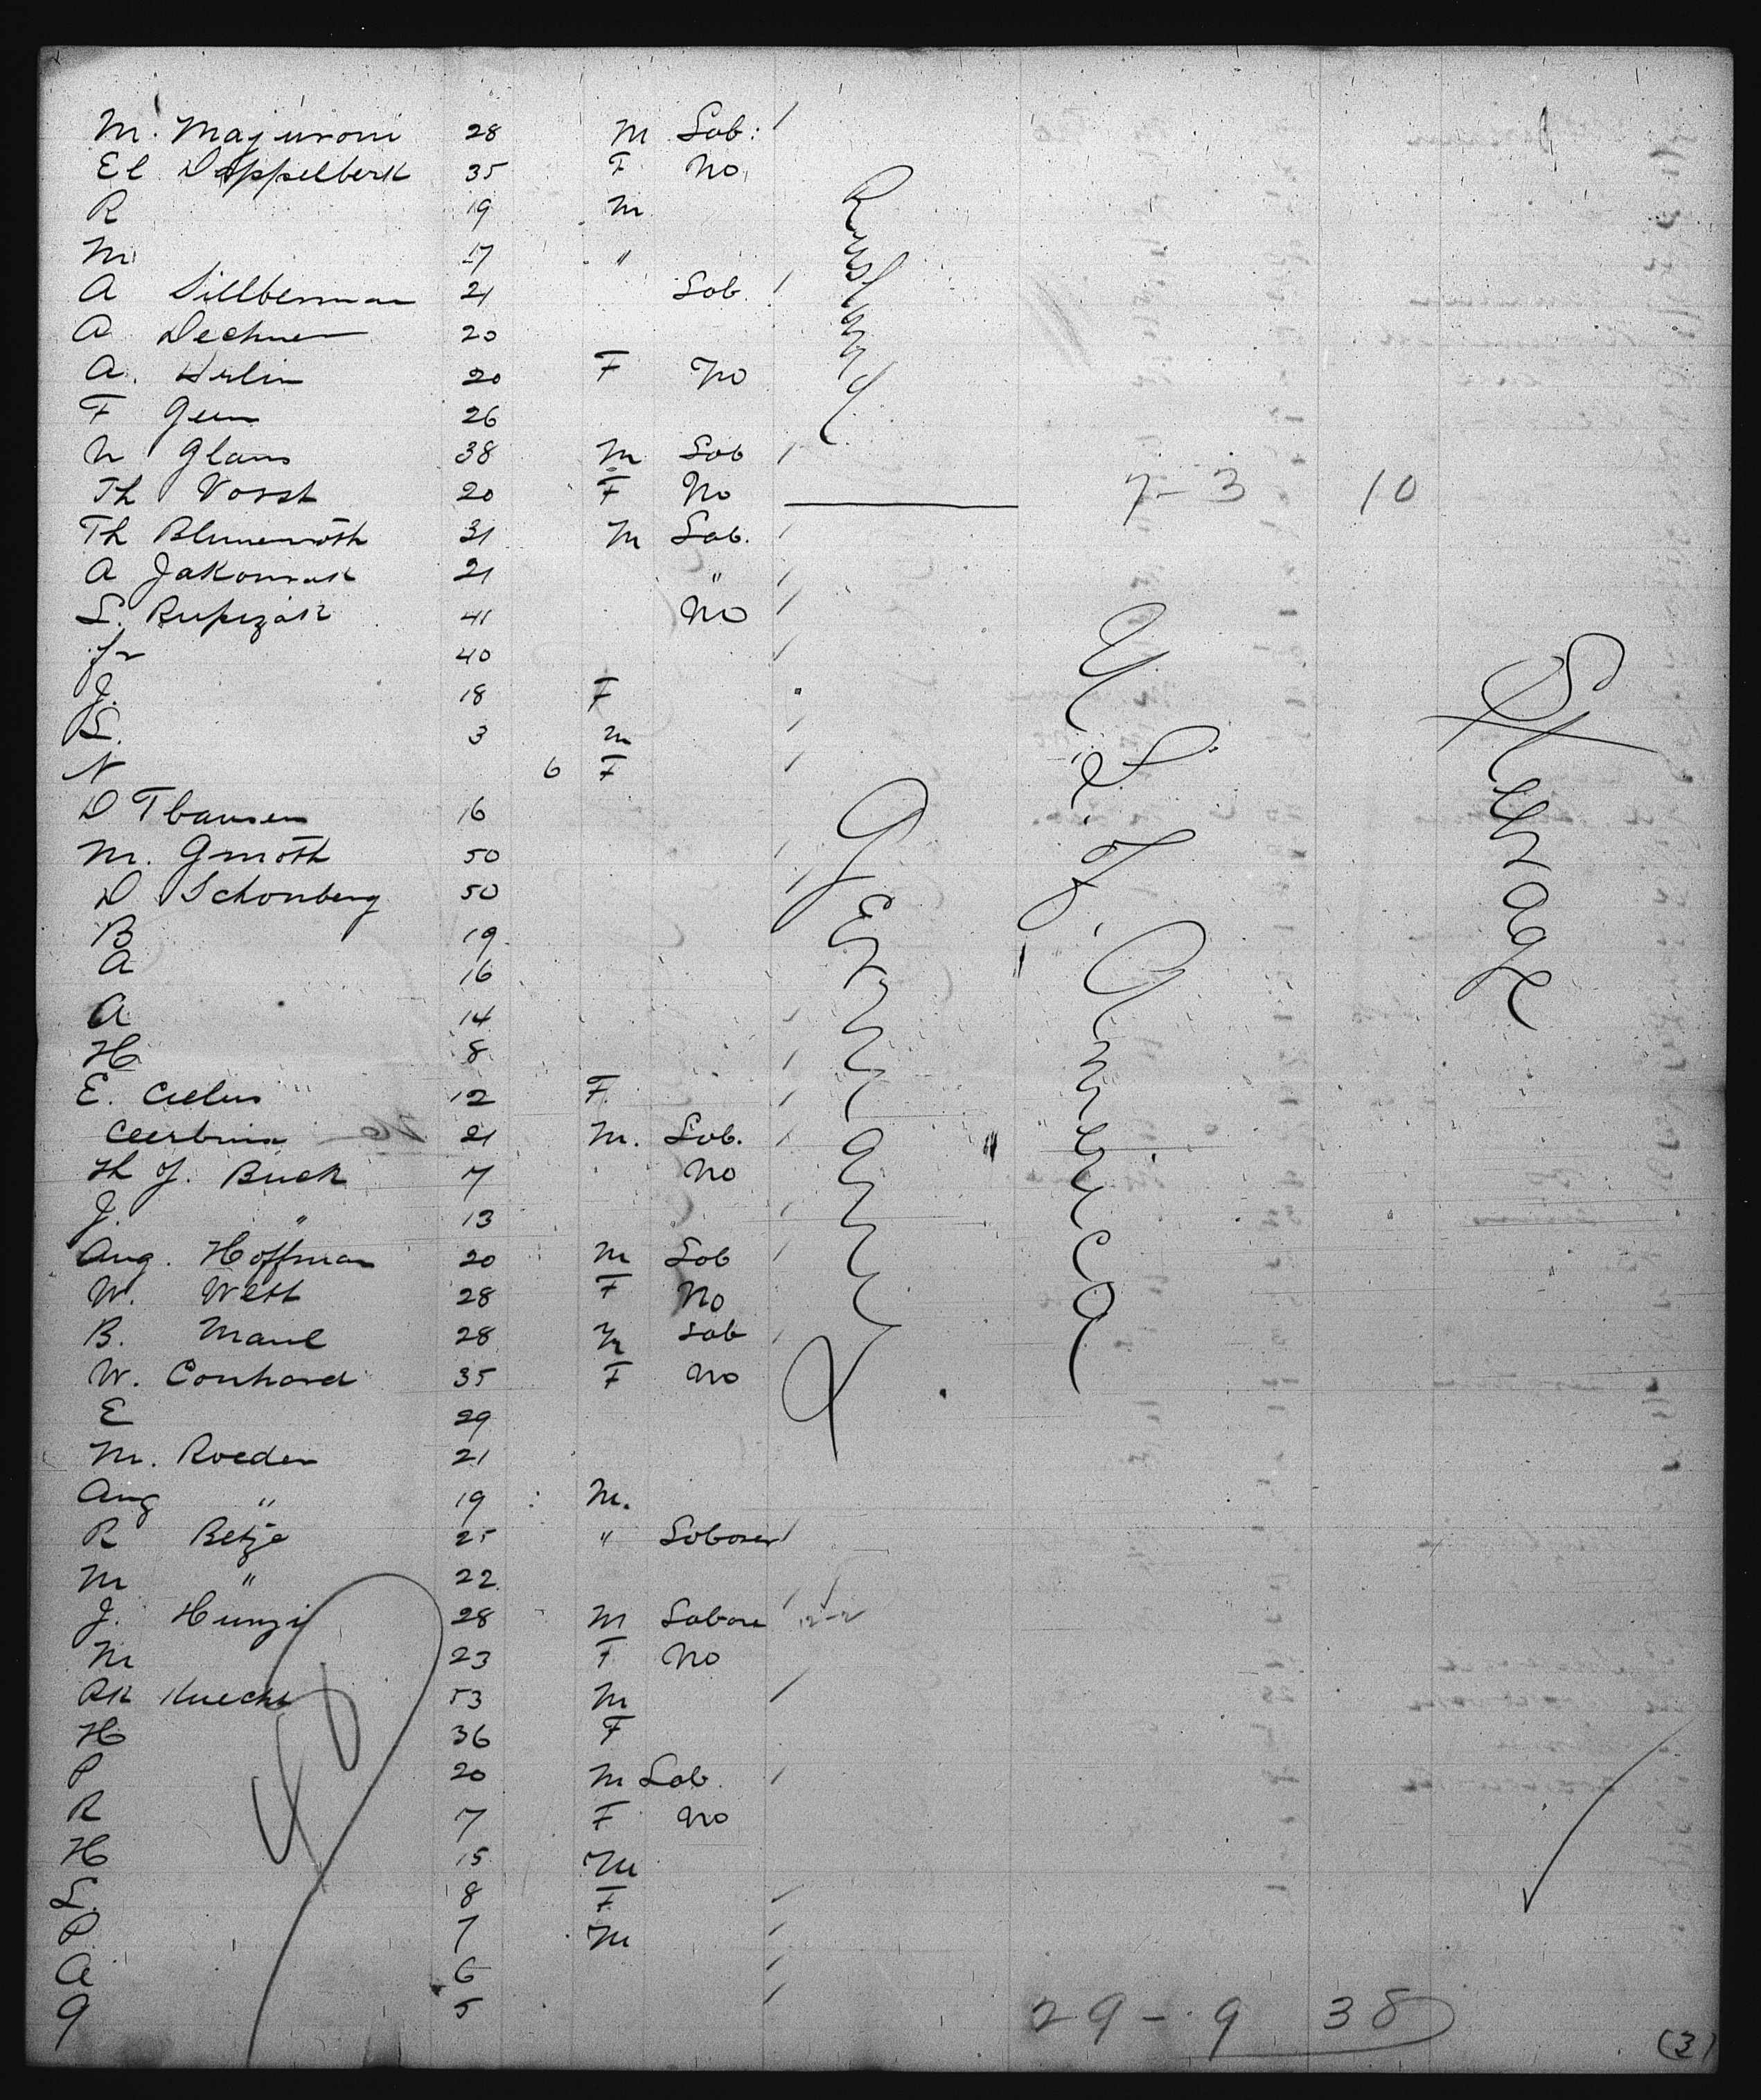 M. Majuroni 28 M Lab:
El Doppelberk 35 F No
R 19 M
M 17 "
A Sillberman 21 Lab.
A Dechner 20
A. Hrlin 20 F No
F Geun 26
N Glans 38 M Lab
Th Vorst 20 F No 7-3 10
Th Blumenroth 31 M Lab.
A Jakonsak 21 "
L. Rupizak 41 No
Jr 40
J. 18 F
L. 3 M
N 6 F
D Thausen 16
M. Gmoth 50
D Schonberg 50
B 19
A 16
A 14
H 8
E. 12 F
21 M. Lab.
Th J. Buck 7 No
J. " 13
Aug. Hoffman 20 M Lab
W. Wett 28 F No
B. Maul 28 M Lab
W. Conhard 35 F No
E 29
M. Roeder 21
Aug " 19 M.
R Betze 25 " Laborer
M " 22
J. Hunzi 28 M Labore 2-2
M 23 F No
RK Knecht 53 M
H 36 F
P 20 M Lab.
R 7 F No
H 15 M
L. 8 F
P 7 M
A 6
G 5
Russland
Germany
U. S. of America
Steerage
40
29-9 38
(3)